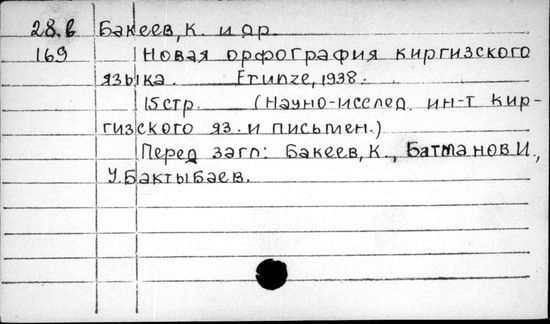 28.в Бакеев, К. и др.
169 Новая орфография киргизского
языка. Frunze, 1938.
15 стр. (Научно-исслед. ин-т кир-
гизского яз. и письмен.)
Перед загл: Бакеев, К., Батманов И.,
У. Бактыбаев.